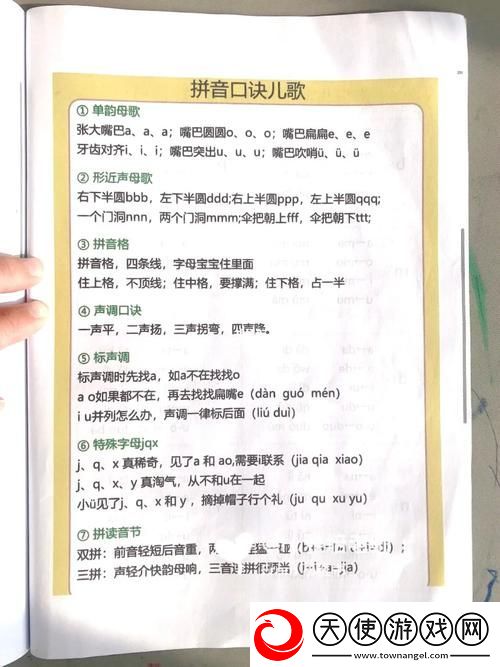 拼音口诀儿歌
① 单韵母歌
张大嘴巴a、a、a；嘴巴圆圆o、o、o；嘴巴扁扁e、e、e
牙齿对齐i、i、i；嘴巴突出u、u、u；嘴巴吹哨ü、ü、ü
② 形近声母歌
右下半圆bbb，左下半圆ddd;右上半圆ppp，左上半圆qqq;
一个门洞nnn，两个门洞mmm;伞把朝上fff，伞把朝下ttt;
③ 拼音格
拼音格，四条线，字母宝宝住里面
住上格，不顶线；住中格，要撑满；住下格，占一半
④ 声调口诀
一声平，二声扬，三声拐弯，四声降。
⑤ 标声调
标声调时先找a，如a不在找找o
a o如果都不在，再去找找扁嘴e（dàn guó mén）
i u并列怎么办，声调一律标后面（liú duì）
⑥ 特殊字母jqx
j、q、x 真稀奇，见了a 和 ao,需要i联系（jia qia xiao）
j、q、x、y 真淘气，从不和u在一起
小ü见了j、q、x 和 y ，摘掉帽子行个礼（ju qu xu yu）
⑦ 拼读音节
双拼：前音轻短后音重，两
三拼：声轻介快韵母响，三音
天使游戏网
www.townangel.com